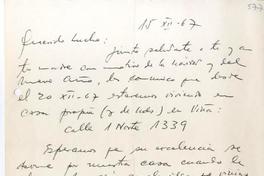 577
15 XII-67
Querido Lucho:
Junto saludarte a ti y a
tu madre con motivo de la Navidad y del
Nuevo Año, les comunico que desde
el 20 XII-67 estaremos viviendo en
casa propia (y de Uds) en Viña:
Calle 1 Norte 1339
Esperamos que su excelencia se
por nuestra casa cuando le